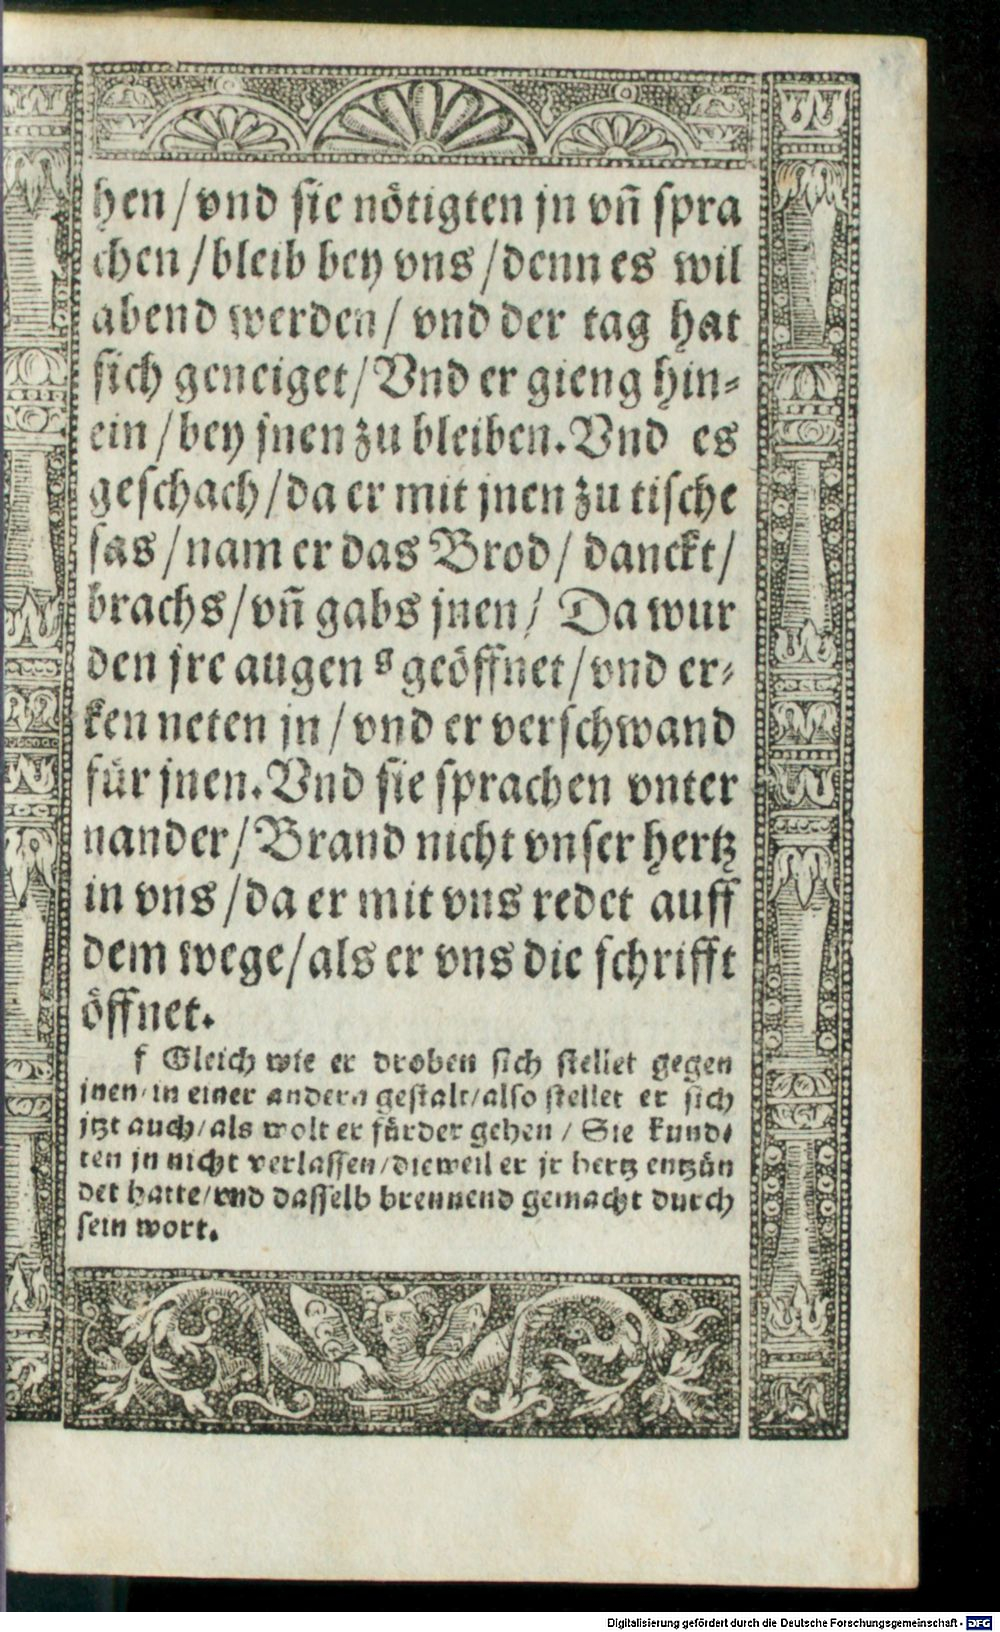 hen / vnd sie nötigten jn vn̄ spra
chen / bleib bey vns / denn es wil
abend werden / vnd der tag hat
sich geneiget / Vnd er gieng hin⸗
ein / bey jnen zu bleiben. Vnd es
geschach / da er mit jnen zu tische
sas / nam er das Brod / danckt /
brachs / vn̄ gabs jnen / Da wur
den jre augen g geöffnet / vnd er⸗
ken neten jn / vnd er verschwand
für jnen. Vnd sie sprachen vnter
nander / Brand nicht vnser hertz
in vns / da er mit vns redet auff
dem wege / als er vns die schrifft
öffnet.
f Gleich wie er droben sich stellet gegen
jnen / in einer andern gestalt / also stellet er sich
jtzt auch / als wolt er fürder gehen / Sie kund⸗
ten jn nicht verlassen / dieweil er jr hertz entzün
det hatte / vnd dasselb brennend gemacht durch
sein wort.
Digitalisierung gefördert durch die Deutsche Forschungsgemeinschaft - DFG